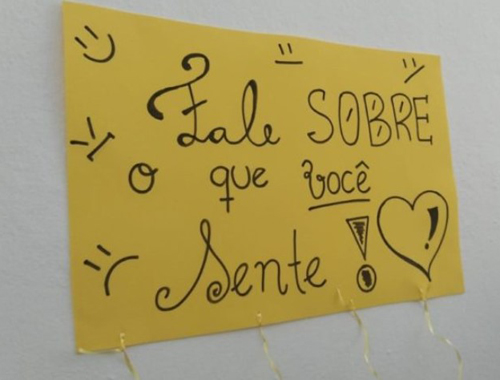 Fale SOBRE
o que você
Sente!